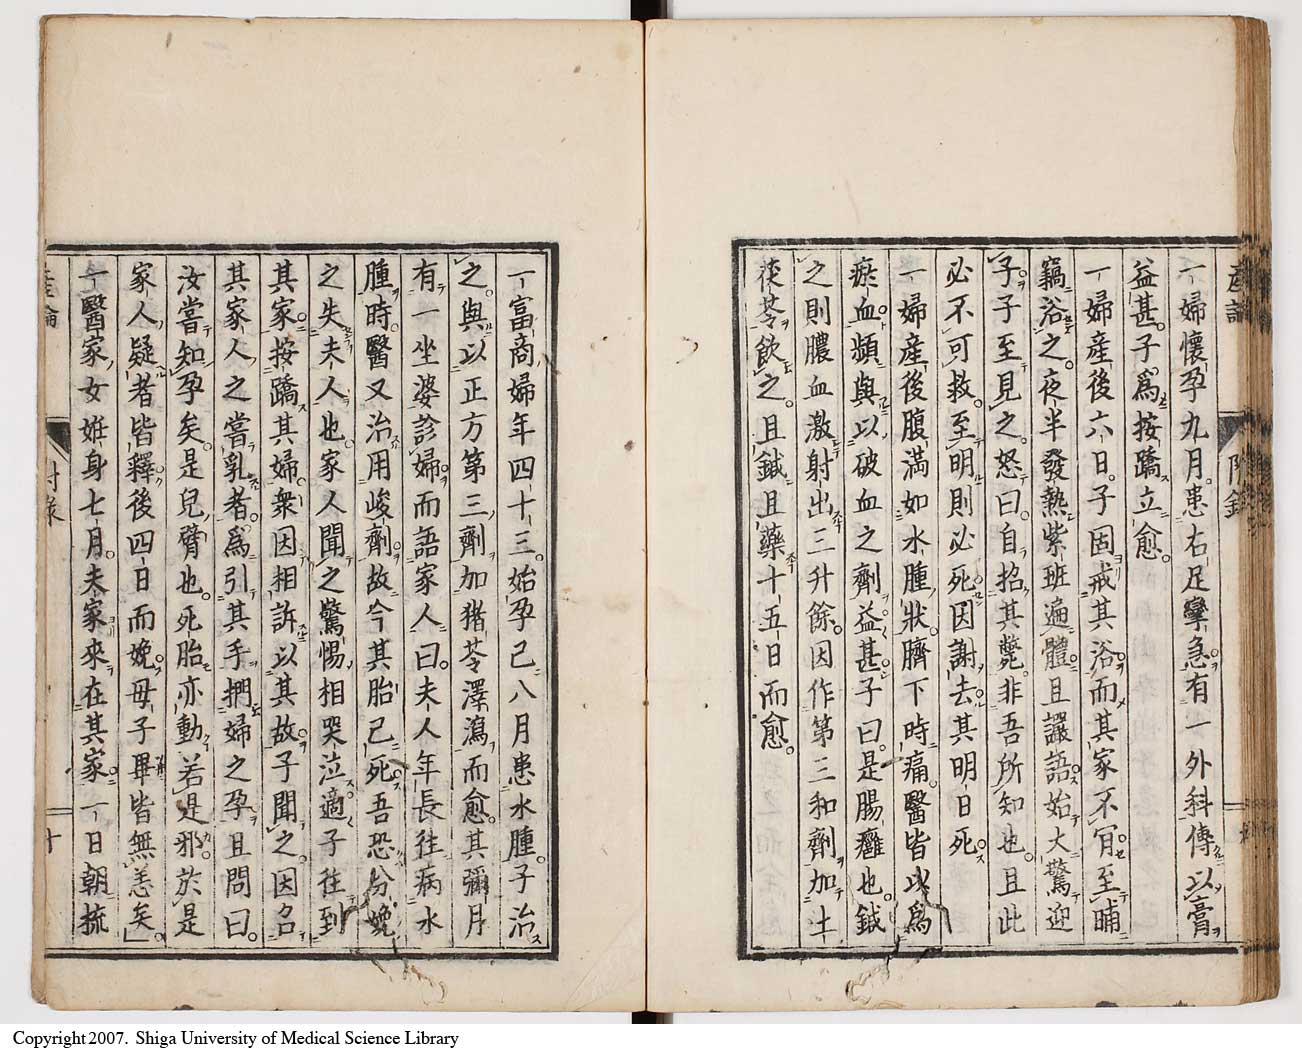 産論
附録
一婦懷孕九月患右足攣急有一外科傳以膏
益甚子爲按蹻立愈
一婦産後六日子固戒其浴而其家不肎至晡
竊浴之夜半發熱紫班遍體且譫語始大驚迎
子子至見之怒曰自招其斃非吾所知也且此
必不可救至明則必死因謝去其明日死
一婦産後腹満如水腫狀臍下時痛醫皆以爲
瘀血頻與以破血之劑益甚子曰是腸癰也鍼
之則膿血激射出三升餘因作第三和劑加
茯苓飲之且鍼且藥十五日而愈
一富商婦年四十三始孕已八月患水腫子治
之與以正方第三劑加猪苓澤瀉而愈其彌月
有一坐婆診婦而語家人曰夫人年長往病水
腫時醫又治用峻劑故今其胎已死吾恐分娩
之失夫人也家人聞之驚惕相哭泣適子往到
其家按蹻其婦衆因相訴以其故子聞之因召
其家人之嘗乳者爲引其手捫婦之孕且問曰
汝嘗知孕矣是兒臂也死胎亦動若是邪於是
家人疑者皆釋後四日而娩母子畢皆無恙矣
一醫家女姙身七月夫家來在其家一日朝梳
産論
附録
十
Copyright 2007. Shiga University of Medical Science Library